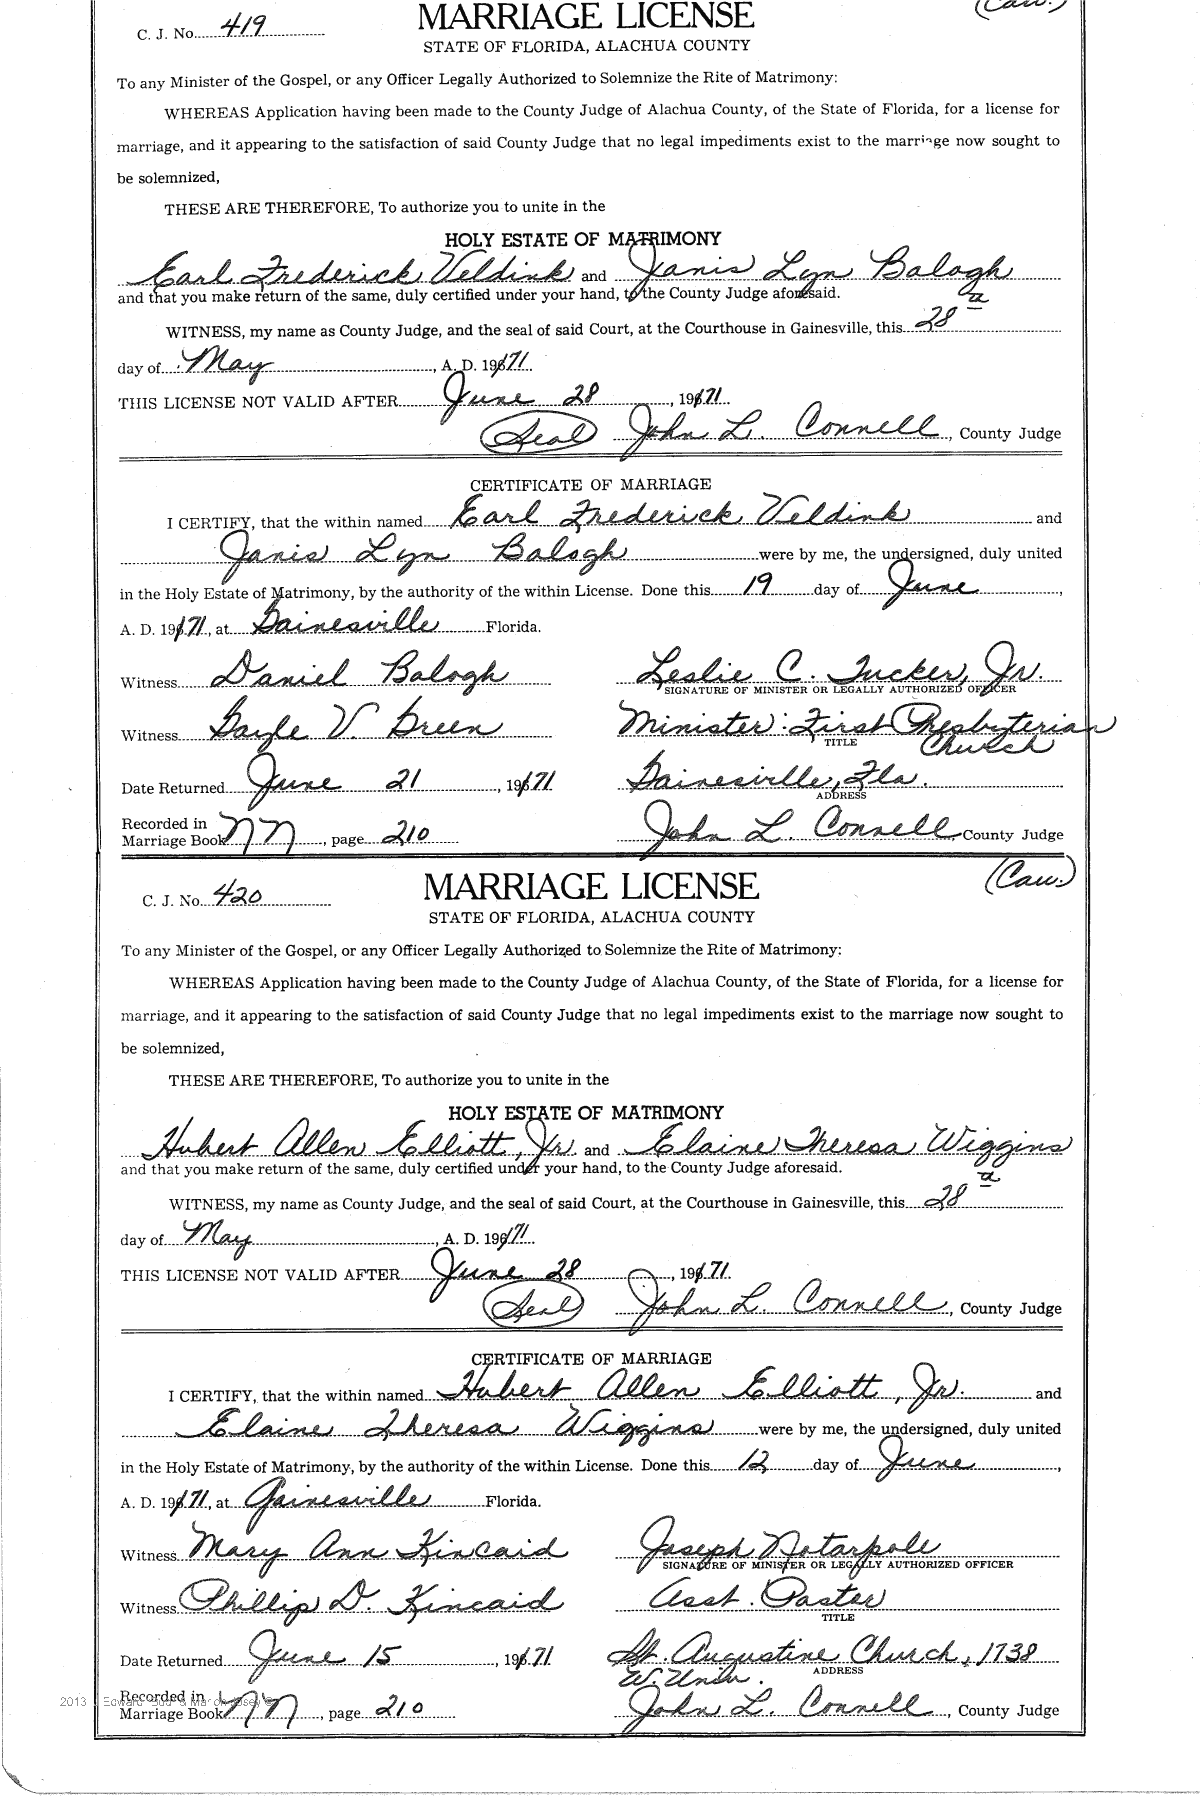 (Cau.)
C. J. No. 419
MARRIAGE LICENSE
STATE OF FLORIDA, ALACHUA COUNTY
To any Minister of the Gospel, or any Officer Legally Authorized to Solemnize the Rite of Matrimony:
WHEREAS Application having been made to the County Judge of Alachua County, of the State of Florida, for a license for
marriage, and it appearing to the satisfaction of said County Judge that no legal impediments exist to the marriage now sought to
be solemnized,
THESE ARE THEREFORE, To authorize you to unite in the
HOLY ESTATE OF MATRIMONY
Earl Frederick Veldink and Janis Lyn Balogh
and that you make return of the same, duly certified under your hand, to the County Judge aforesaid.
WITNESS, my name as County Judge, and the seal of said Court, at the Courthouse in Gainesville, this 28
day of May, A. D. 1971.
THIS LICENSE NOT VALID AFTER June 28, 1971.
(Seal) John L. Connell, County Judge
CERTIFICATE OF MARRIAGE
I CERTIFY, that the within named Earl Frederick Veldink and
Janis Lyn Balogh were by me, the undersigned, duly united
in the Holy Estate of Matrimony, by the authority of the within License. Done this 19 day of June,
A. D. 1971, at Gainesville Florida.
Witness Daniel Balogh Leslie C. Tucker, Jr.
SIGNATURE OF MINISTER OR LEGALLY AUTHORIZED OFFICER
Witness Gayle V. Green Minister: First Presbyterian
TITLE Church
Date Returned June 21, 1971 Gainesville, Fla.
ADDRESS
Recorded in
Marriage Book NN, page 210 John L. Connell County Judge
(Cau.)
C. J. No. 420
MARRIAGE LICENSE
STATE OF FLORIDA, ALACHUA COUNTY
To any Minister of the Gospel, or any Officer Legally Authorized to Solemnize the Rite of Matrimony:
WHEREAS Application having been made to the County Judge of Alachua County, of the State of Florida, for a license for
marriage, and it appearing to the satisfaction of said County Judge that no legal impediments exist to the marriage now sought to
be solemnized,
THESE ARE THEREFORE, To authorize you to unite in the
HOLY ESTATE OF MATRIMONY
Hubert Allen Elliott, Jr. and Elaine Theresa Wiggins
and that you make return of the same, duly certified under your hand, to the County Judge aforesaid.
WITNESS, my name as County Judge, and the seal of said Court, at the Courthouse in Gainesville, this 28
day of May, A. D. 1971.
THIS LICENSE NOT VALID AFTER June 28, 1971.
(Seal) John L. Connell, County Judge
CERTIFICATE OF MARRIAGE
I CERTIFY, that the within named Hubert Allen Elliott, Jr. and
Elaine Theresa Wiggins were by me, the undersigned, duly united
in the Holy Estate of Matrimony, by the authority of the within License. Done this 12 day of June,
A. D. 1971, at Gainesville Florida.
Witness Mary Ann Kincaid Joseph Notarpole
SIGNATURE OF MINISTER OR LEGALLY AUTHORIZED OFFICER
Witness Phillip D. Kincaid Asst. Pastor
TITLE
Date Returned June 15, 1971 St. Augustine Church, 1738
ADDRESS W. Univ.
Recorded in
Marriage Book NN, page 210 John L. Connell, County Judge
2013